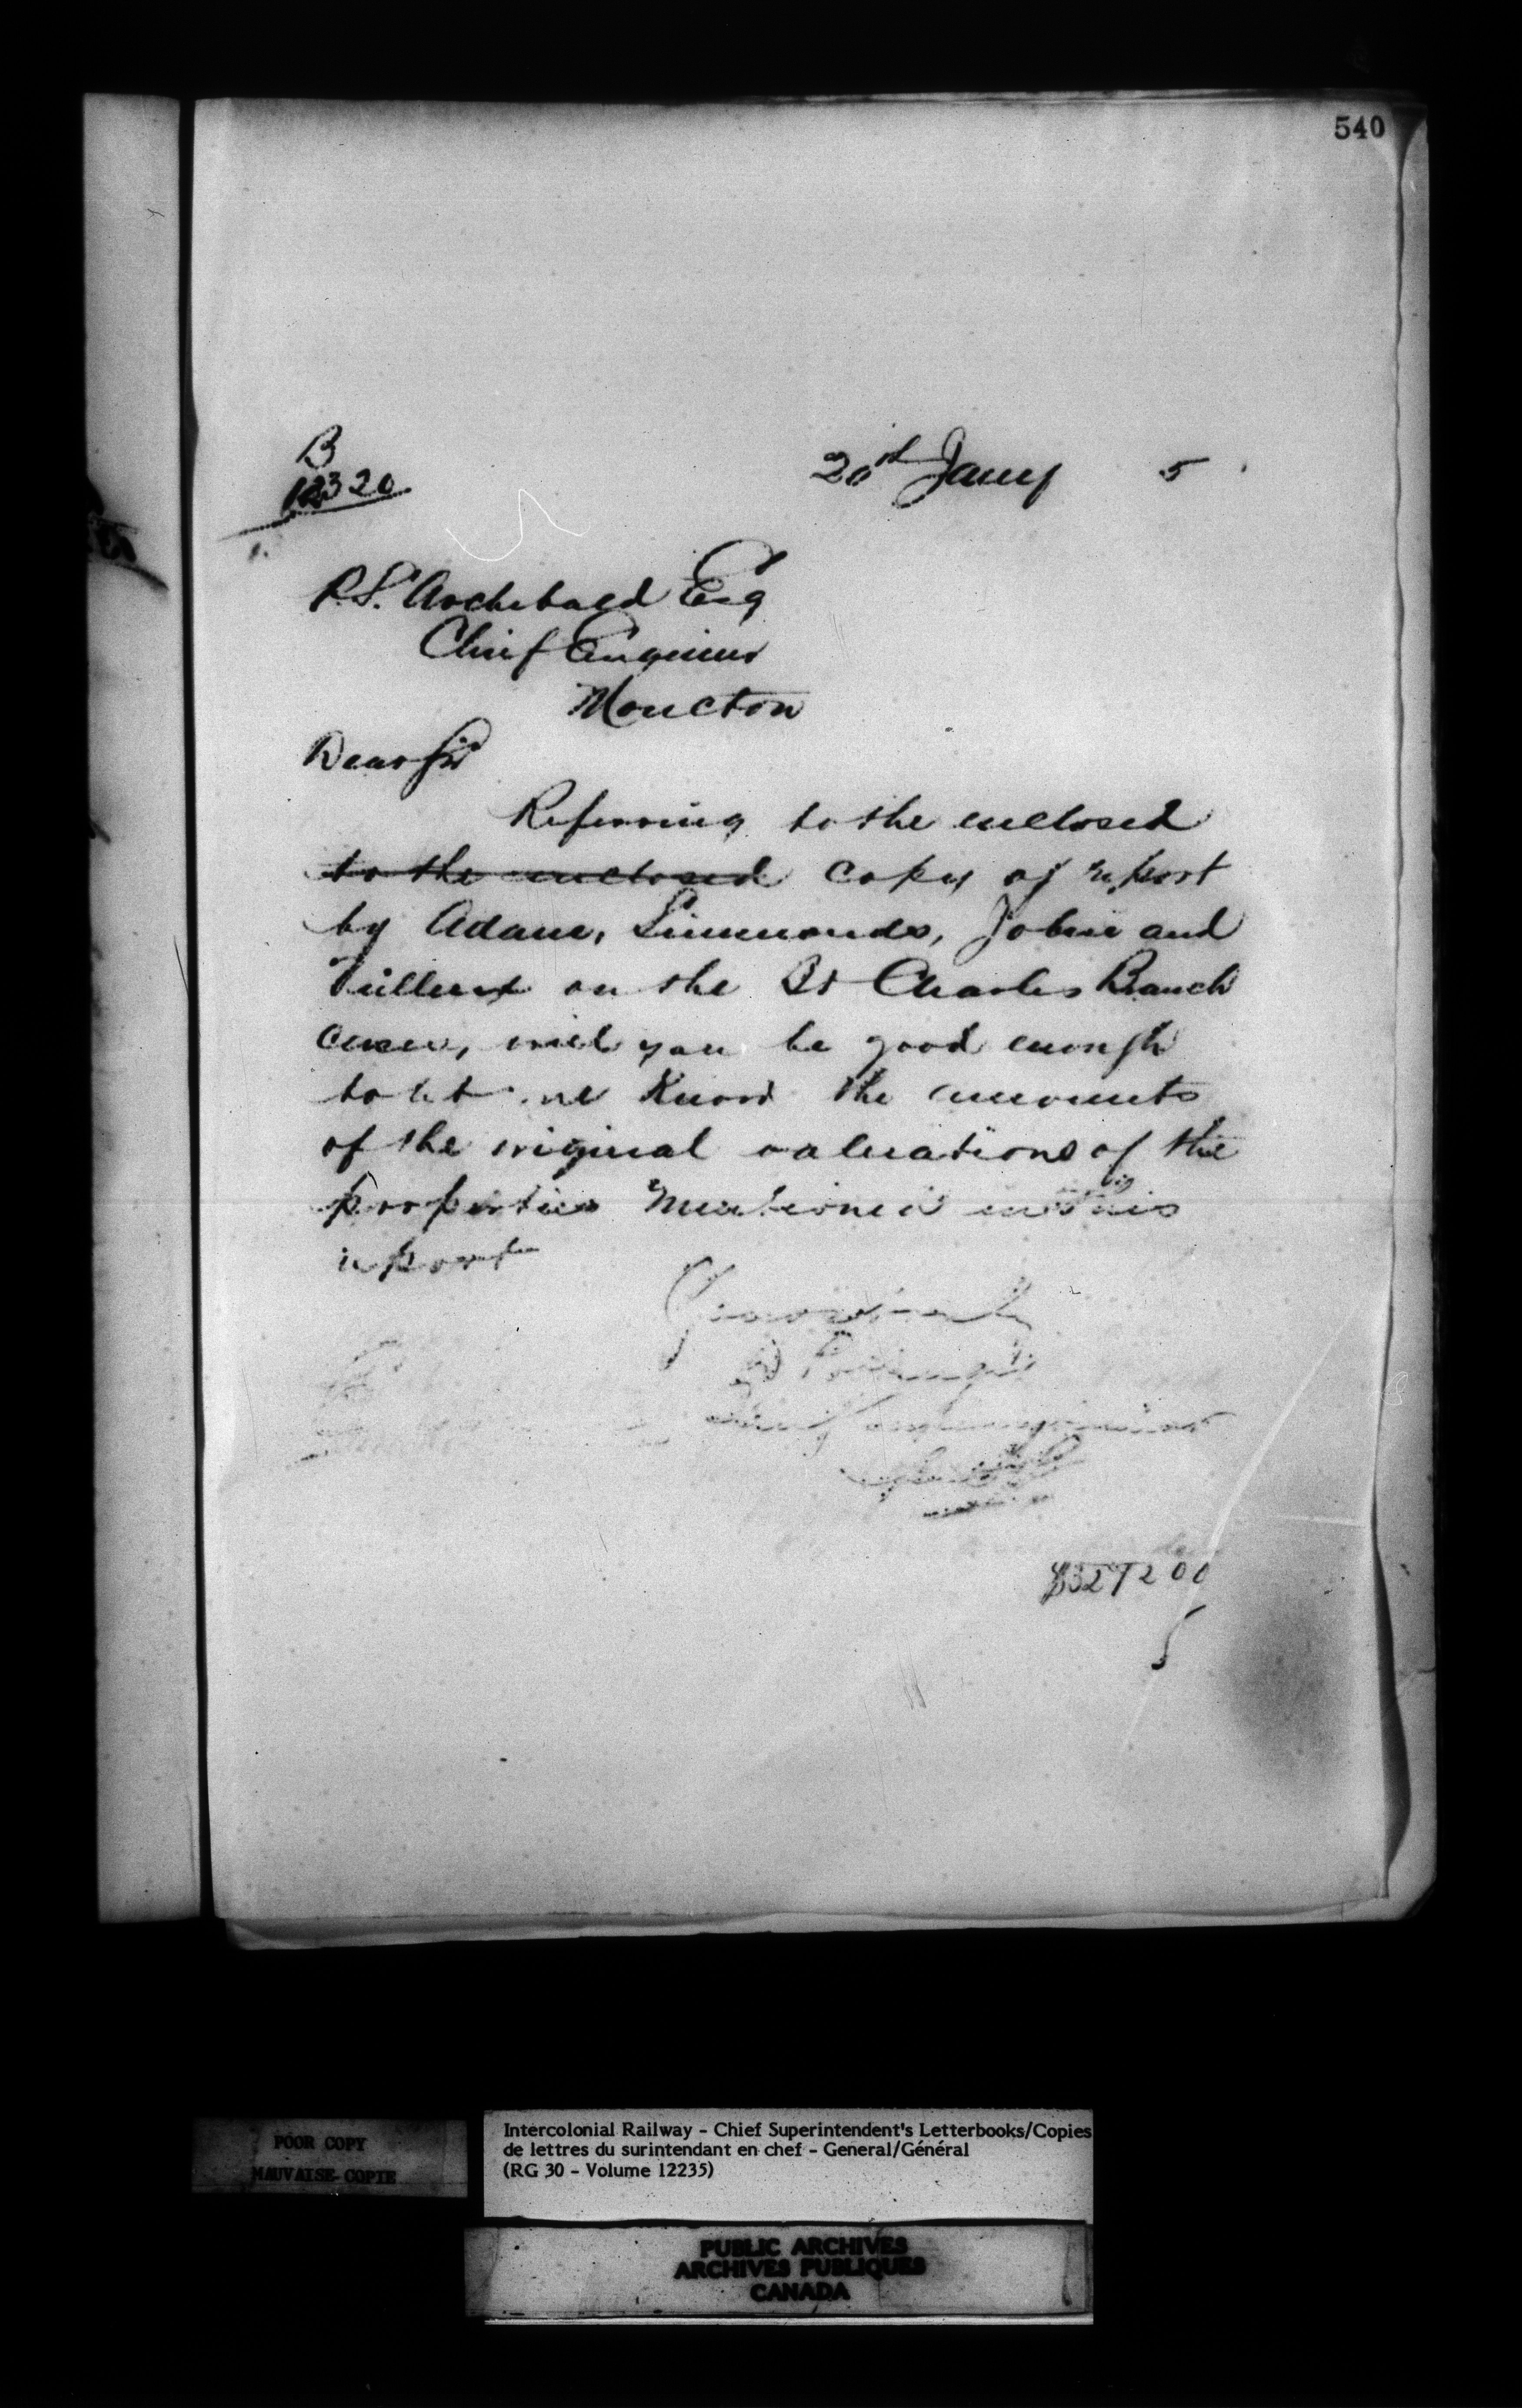 540
B
12320
20th Jany 5
P.S. Archibald Esq
Chief Engineer
Moncton
Dear Sir
Referring to the enclosed
to the enclosed copy of report
by Adam, Simmonds, Jobin and
on the St Charles Branch
cases, will you be good enough
to let me know the amounts
of the original valuations of the
properties mentioned in this
report
Yours truly
D Pottinger
Chief Superintendent
$327200
POOR COPY
MAUVAISE COPIE
Intercolonial Railway - Chief Superintendent's Letterbooks/Copies
de lettres du surintendant en chef - General/Général
(RG 30 - Volume 12235)
PUBLIC ARCHIVES
ARCHIVES PUBLIQUES
CANADA